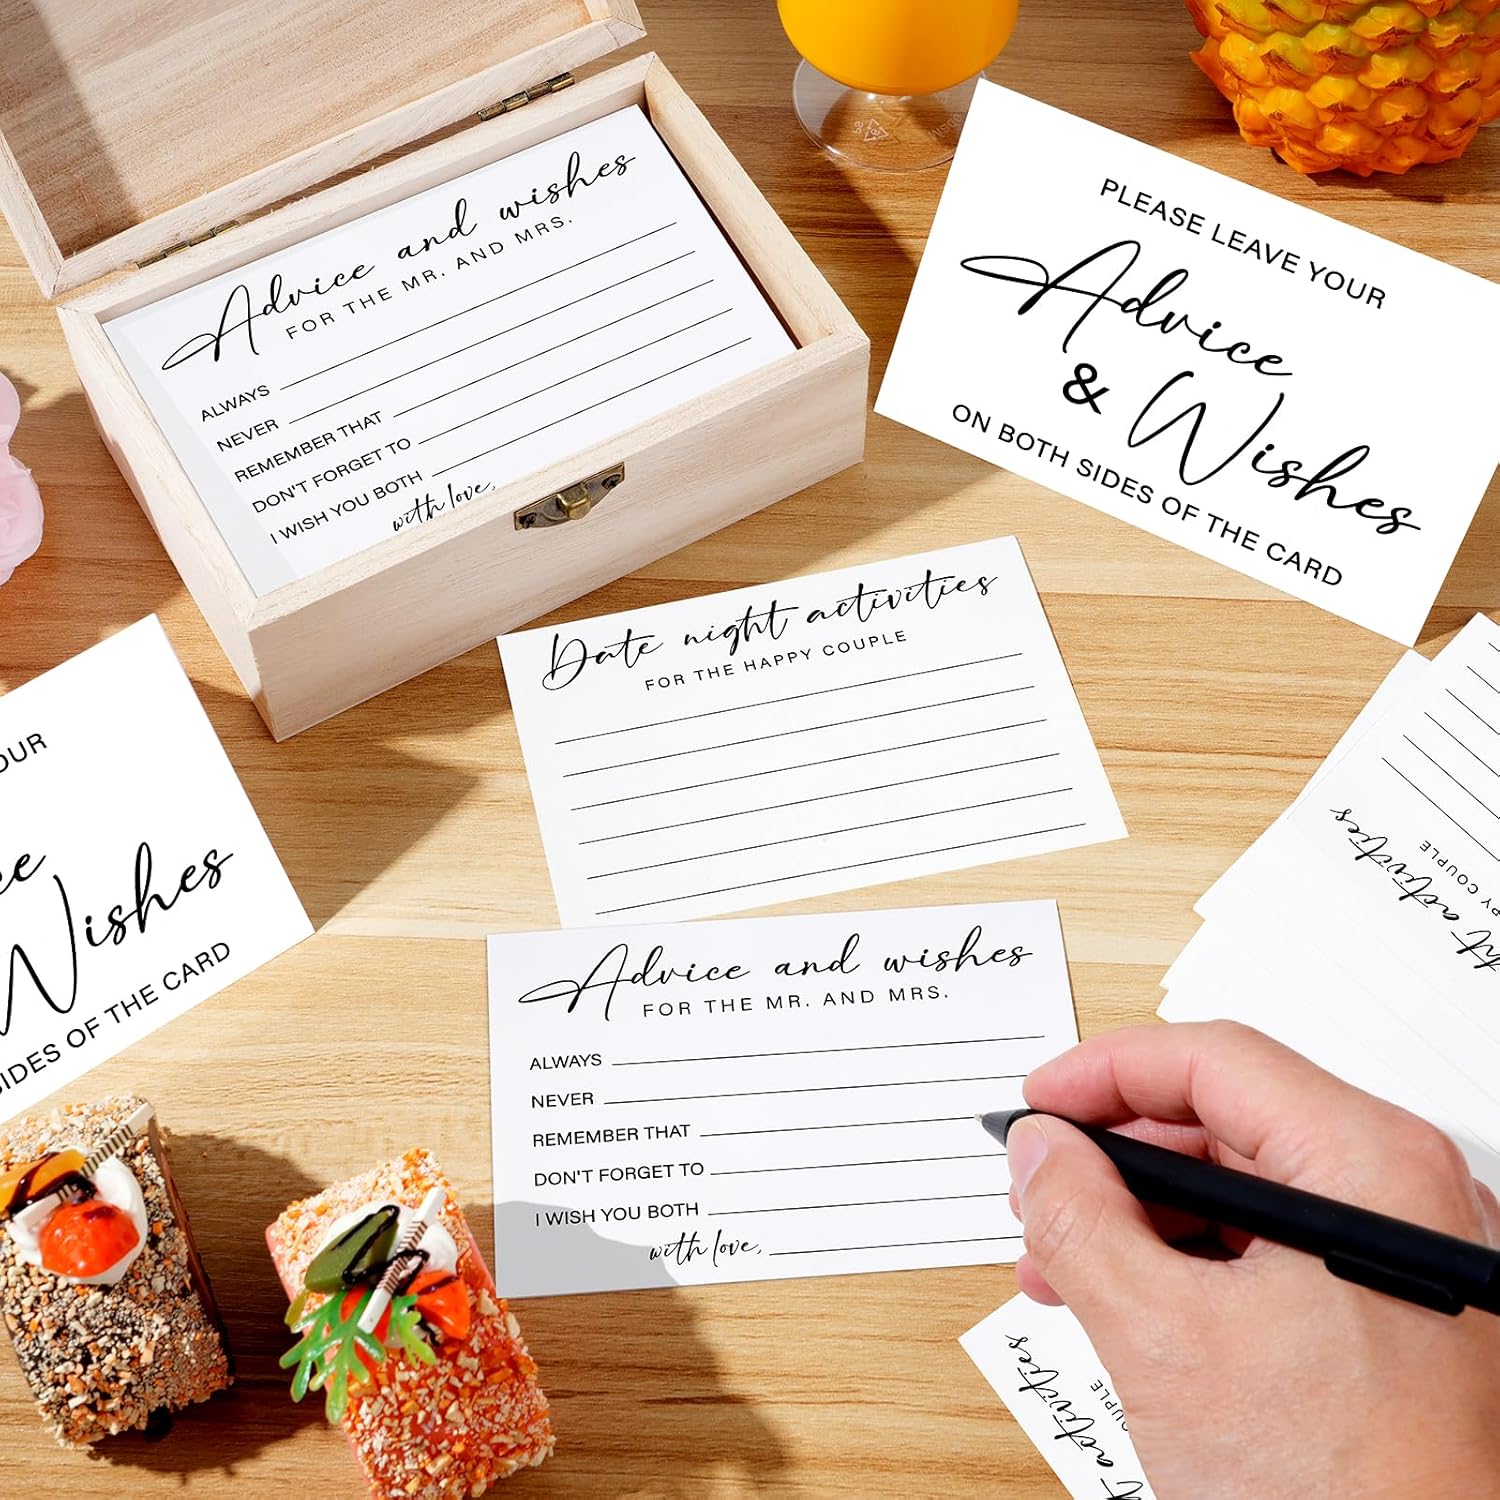 Advice and wishes
FOR THE MR. AND MRS.
ALWAYS
NEVER
REMEMBER THAT
DON'T FORGET TO
I WISH YOU BOTH
with love,
PLEASE LEAVE YOUR
Advice
& Wishes
ON BOTH SIDES OF THE CARD
Date night activities
FOR THE HAPPY COUPLE
Wishes
SIDES OF THE CARD
Advice and wishes
FOR THE MR. AND MRS.
ALWAYS
NEVER
REMEMBER THAT
DON'T FORGET TO
I WISH YOU BOTH
with love,
activities
COUPLE
activities